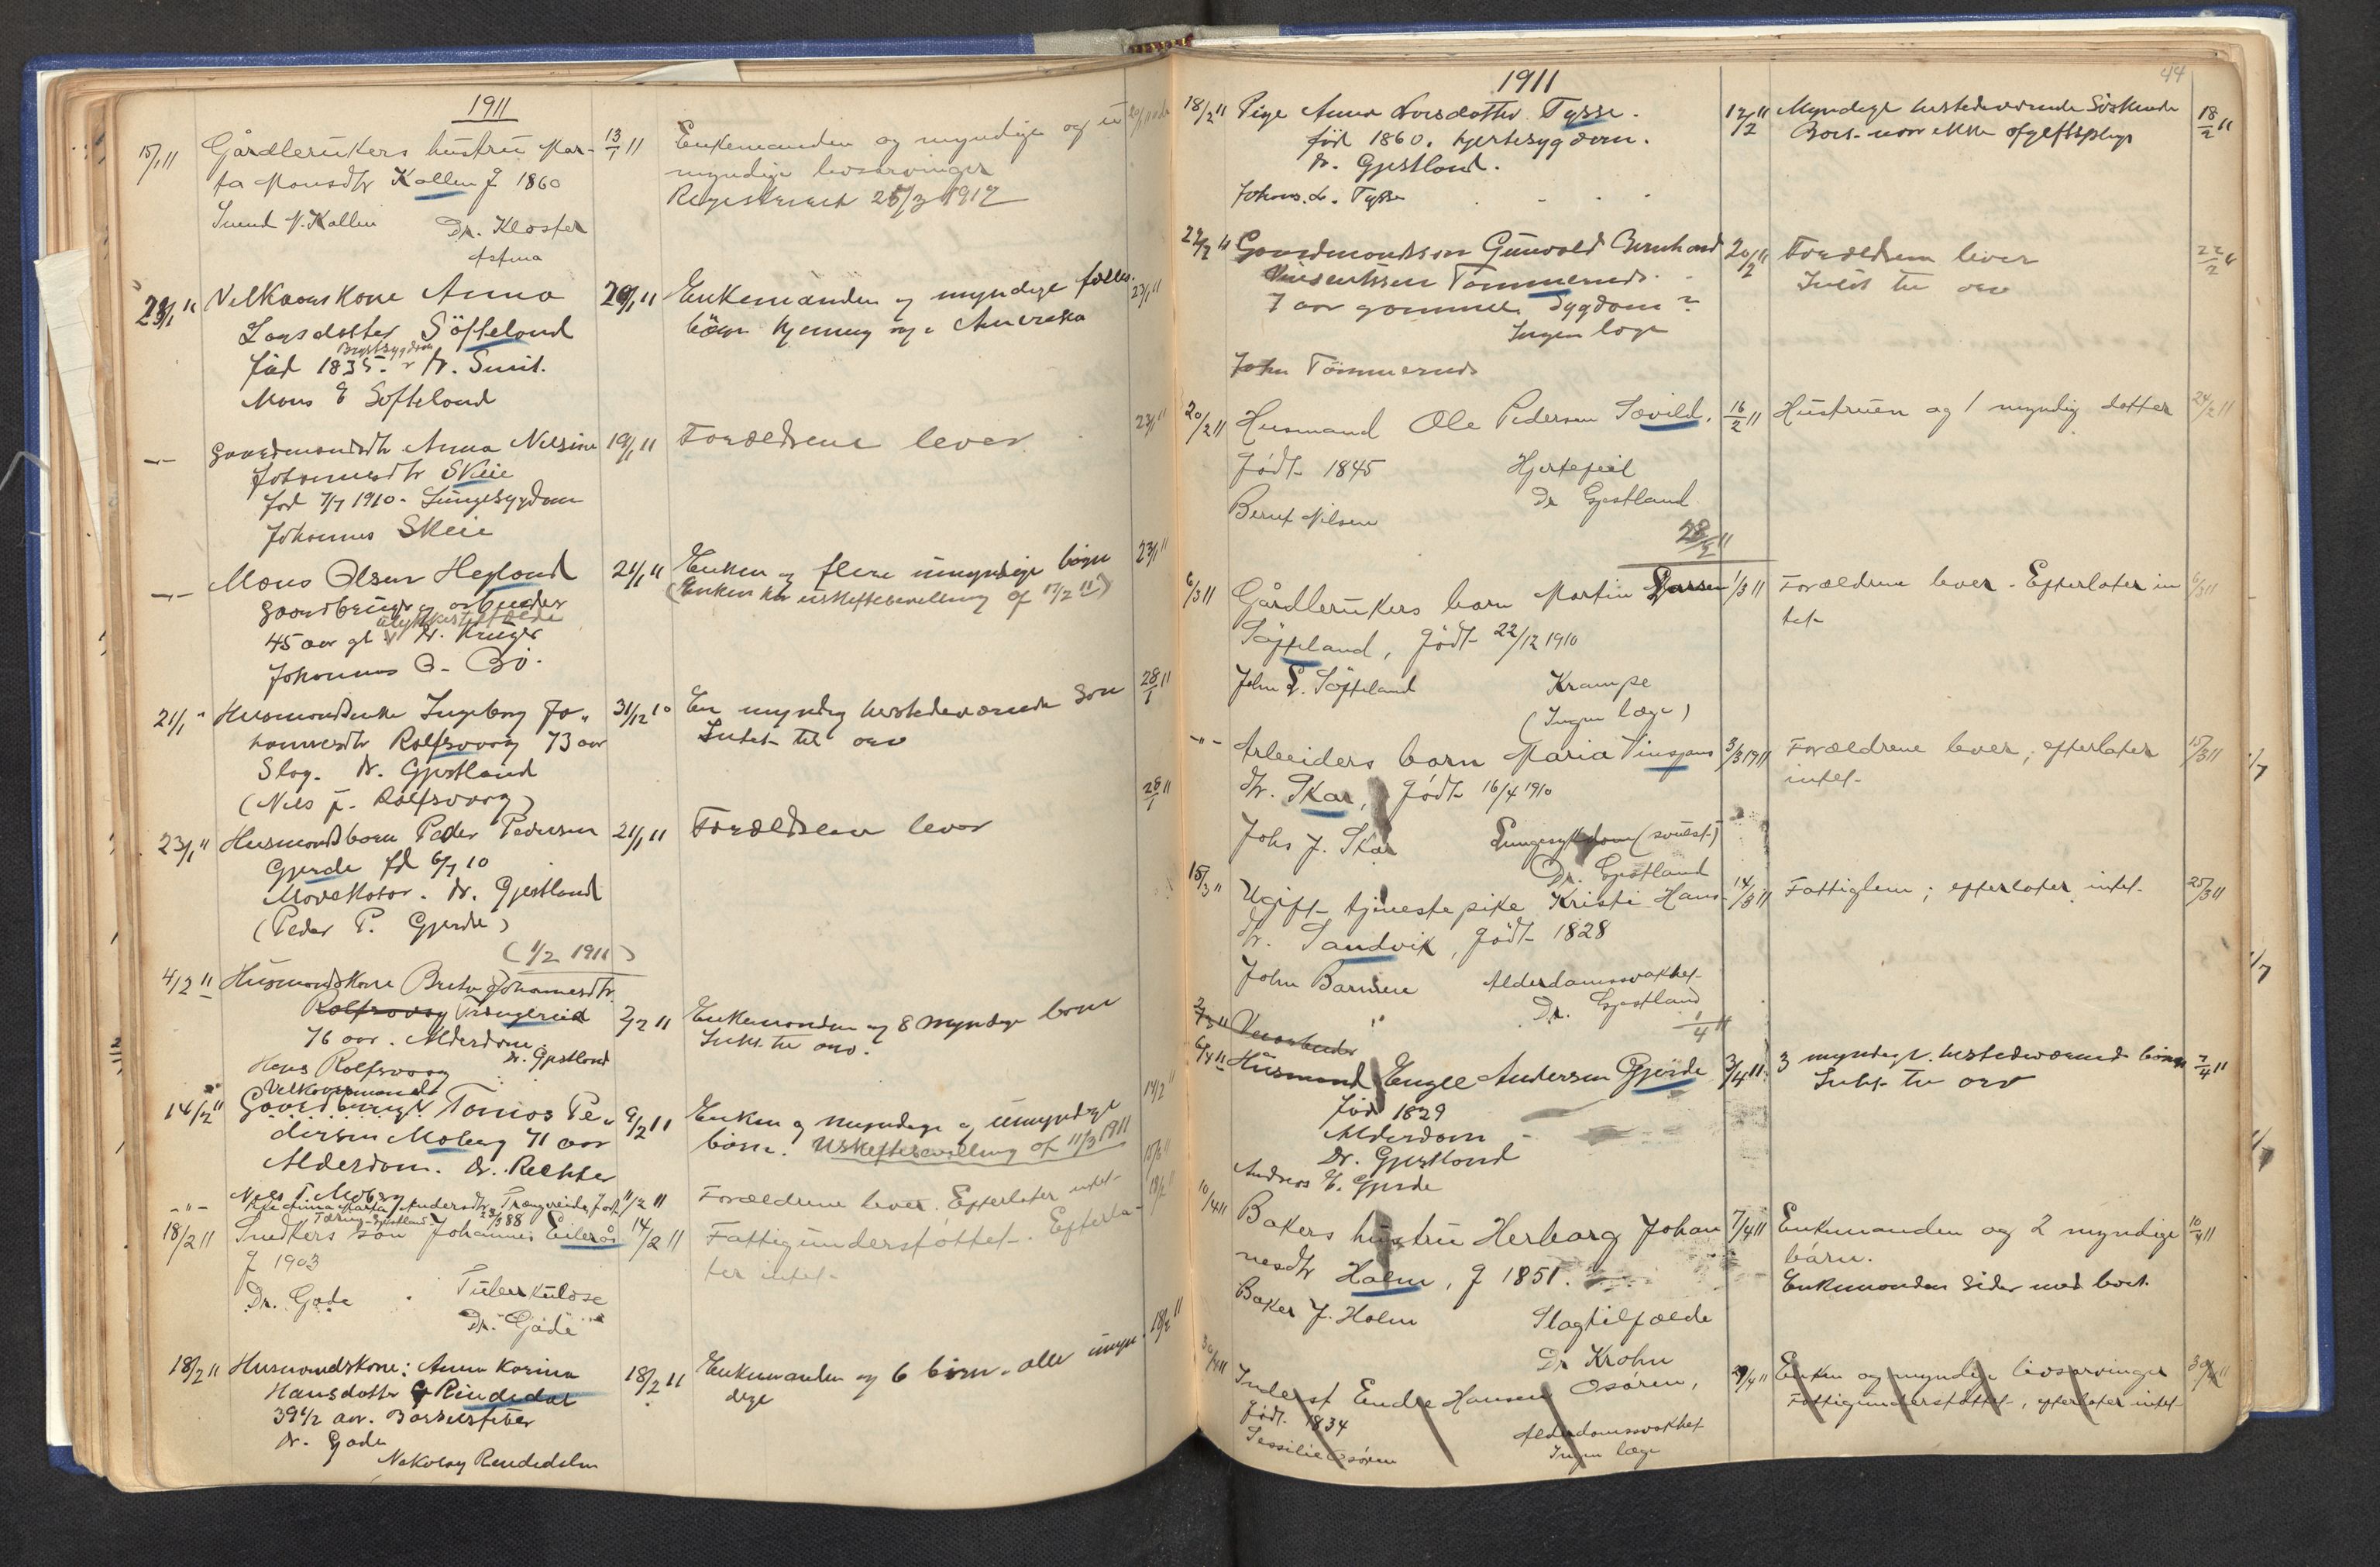 1911
15/1 11 Gårdbrukers hustru Mar- 13/1 11 Enkemanden og myndige og u
ta Monsdtr Kallen f 1860 myndige livsarvinger
Registrert 25/3 1912
Svend N. Kallen Dr. Kloster
Astma
23/1 11 Velkaarskone Anna 20/1 11 Enkemanden og myndige fælles 23/1 11
Larsdatter Søfteland børn hjemme og i Amerika
Brystsygdom
Fød 1835. Dr. Smit.
Mons E Softeland
-"- Gaardmandsdtr Anna Nilsine 19/1 11 Forældrene lever 23/1 11
Johannesdtr Skeie
fød 7/7 1910 - Lungesygdom
Johannes Skeie
-"- Mons Olsen Hegland 21/1 11 Enken og flere umyndige børn 23/1 11
Gaardbruger og arbeider (Enken har uskiftebevilling af 17/2 11)
ulykkestilfælde
45 aar gl Dr. Krüger
Johannes O. Bö.
21/1 " Husmandsenke Ingeborg Jo- 31/12 10 En myndig hestedeværende søn 28/1 11
hannesdtr Rolfsvaag 73 aar Intet til arv
Slag. Dr. Gjestland
(Nils J. Rolfsvaag)
23/1 11 Husmandsbarn Peder Pedersen 21/1 11 Forældrene lever 28/1 11
Gjerde fd 6/7 10
Mavekatar. Dr. Gjestland
(Peder P. Gjerde)
(1/2 1911)
4/2 11 Husmandskone Brita Johannesdtr.
Rolfsvaag Trængereid 2/2 11 Enkemanden og 8 myndige børn
76 aar. Alderdom. Intet til arv.
Dr. Gjestland
Hans Rolfsvaag
Velkaarsmand
14/2 11 Gaardbruger Tomas Pe- 9/2 11 Enken og myndige og umyndige 14/2 11
dersen Moberg 71 aar børn. Uskiftebevilling af 11/3 1911
Alderdom. Dr. Rechter
Nils T. Moberg
-"- Pike Anna Marta Andersdtr Trængereid, født 11/2 11 Forældrene lever. Efterlater intet
Tæring - Gjestland 23/3 88
18/2 11 Snedkers søn Johannes Eilerås 14/2 11 Fattigunderstøttet. Efterla- 18/2 11
f 1903 ter intet.
Dr. Gade Tuberkulose
Dr. Gade
18/2 11 Husmandskone: Anna Karina 18/2 11 Enkemanden og 6 børn - alle umyn- 18/2 11
Hansdatter Rindedal dige
39 1/2 aar. Barselfeber
Dr. Gade
Nikolay Rendedalen
44
1911
18/2 11 Pige Anna Larsdatter Tysse. 12/2 11 Myndige hestedeværende Søskende 18/2 11
fød 1860. Hjertesygdom. Boet - nær ikke afgiftspligt
Dr. Gjestland.
Johans. L. Tysse
22/2 11 Gaardmandssøn Gunvald Bernhard 20/2 11 Forældrene lever 22/2 11
Tømmernes. Intet til arv
7 aar gammel. Sygdom?
Ingen læge
John Tømmernes
20/2 11 Husmand Ole Pedersen Sævild. 16/2 11 Hustruen og 1 myndig datter 24/2 11
Født 1845 Hjertefeil
Dr Gjestland
Bernt Nilsen
28/2 11
6/3 11 Gårdbrukers barn Martin Larsen 1/3 11 Forældrene lever. Efterlater in 6/3 11
Søfteland, født 22/12 1910 tet
John L. Søfteland Krampe
(Ingen læge)
-"- Arbeiders barn Maria Vinsjans 3/3 1911 Forældrene lever; efterlater 15/3 11
dtr. Skar, født 16/4 1910 intet.
Johs J. Skar Lungesykdom (svulst)
Dr. Gjestland
15/3 11 Ugift tjenestepike Kristi Hans- 14/3 11 Fattiglem; efterlater intet. 25/3 11
dtr. Sandvik, født 1828
John Barmen Alderdomssvakhet
Dr. Gjestland
1/4 11
6/4 11 Husmand Engel Andersen Gjerde 3/4 11 3 myndige hestedeværende børn 7/4 11
Fød 1829 Intet til arv
Alderdom
Dr. Gjestland
Andreas E. Gjerde
10/4 11 Bakers hustru Herborg Johan 7/4 11 Enkemanden og 2 myndige 10/4 11
nesdtr Holm, f 1851. børn.
Enkemanden sider med boet.
Baker J. Holm Slagtilfælde
Dr Krohn
30/4 11 Inderst Endre Hansen Osøren, 29/4 11 Enken og myndige livsarvinger 30/4 11
født 1834 Fattigunderstøttet, efterlater intet
Alderdomssvakhet
Sessilie Osøren Ingen læge